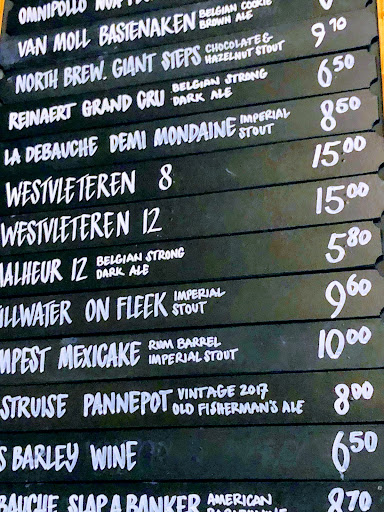 OMNIPOLLO
VAN MOLL BASTENAKEN BELGIAN COOKIE BROWN ALE
NORTH BREW. GIANT STEPS CHOCOLATE & HAZELNUT STOUT 9 10
REINAERT GRAND CRU BELGIAN STRONG DARK ALE 6 50
LA DEBAUCHE DEMI MONDAINE IMPERIAL STOUT 8 50
WESTVLETEREN 8 15 00
WESTVLETEREN 12 15 00
MALHEUR 12 BELGIAN STRONG DARK ALE 5 80
ILLWATER ON FLEEK IMPERIAL STOUT 9 60
MPEST MEXICAKE RUM BARREL IMPERIAL STOUT 10 00
STRUISE PANNEPOT VINTAGE 2017 OLD FISHERMAN'S ALE 8 00
S BARLEY WINE 6 50
BAUCHE SLAP A BANKER AMERICAN 8 70